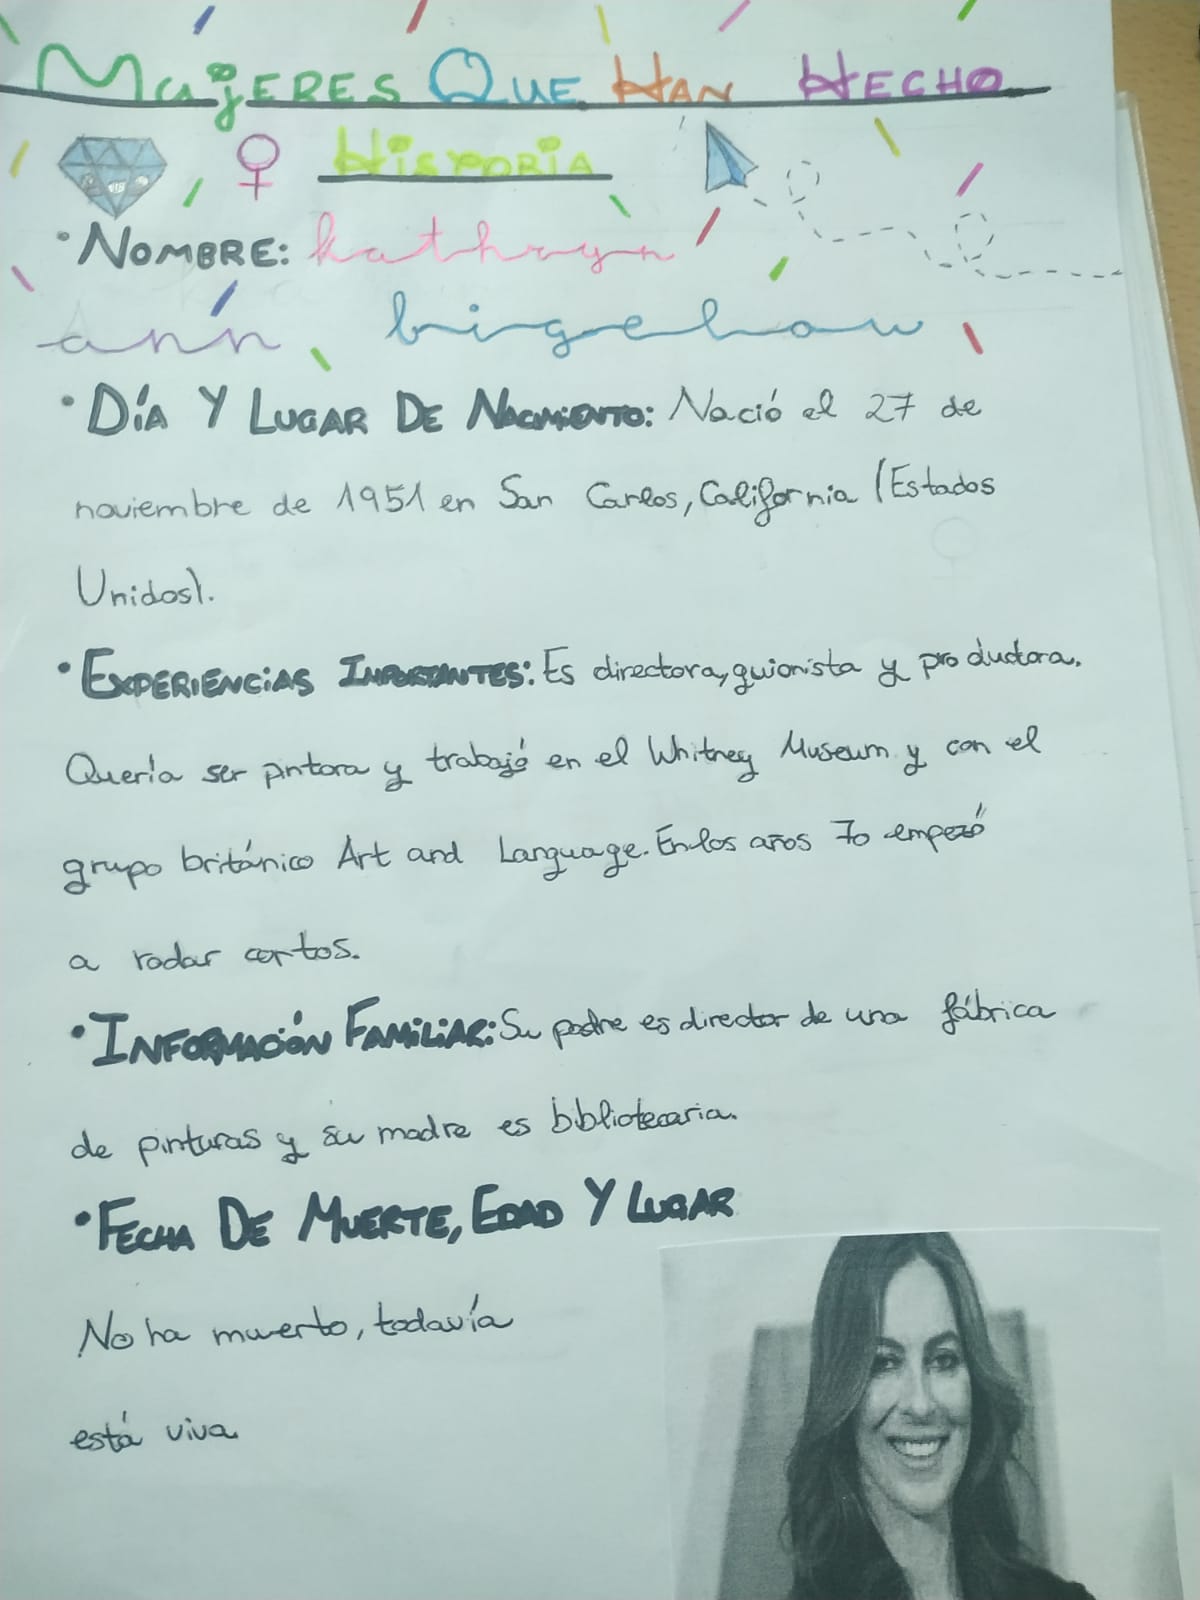 MUJERES QUE HAN HECHO
HISTORIA
• NOMBRE: kathryn
ann bigelow
• DÍA Y LUGAR DE NACIMIENTO: Nació el 27 de
noviembre de 1951 en San Carlos, California (Estados
Unidos).
• EXPERIENCIAS IMPORTANTES: Es directora, guionista y productora.
Quería ser pintora y trabajó en el Whitney Museum y con el
grupo británico Art and Language. En los años 70 empezó
a rodar cortos.
• INFORMACIÓN FAMILIAR: Su padre es director de una fábrica
de pinturas y su madre es bibliotecaria.
• FECHA DE MUERTE, EDAD Y LUGAR
No ha muerto, todavía
está viva